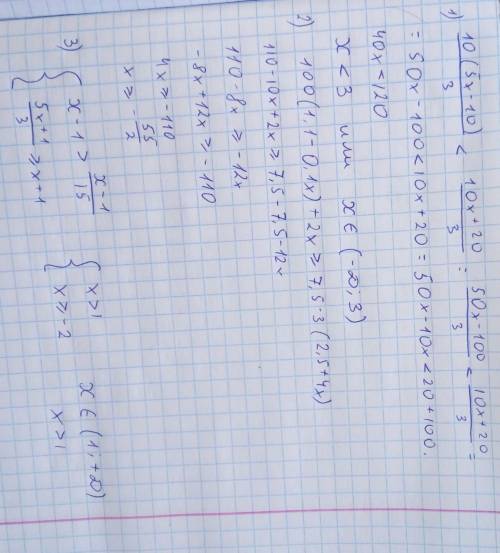 1) 10(5x-10)/3 < (10x+20)/3 = (50x-100)/3 < (10x+20)/3 =
= 50x-100<10x+20 = 50x-10x<20+100.
40x<120
x<3 или x∈(-∞;3)
2) 100(1,1-0,1x)+2x ≥ 7,5-3(2,5+4x)
110-10x+2x ≥ 7,5-7,5-12x
110-8x ≥ -12x
-8x+12x ≥ -110
4x ≥ -110
x ≥ -55/2
3) { x-1 > (x-1)/15 { x>1 x∈(1;+∞)
{ (5x+1)/3 ≥ x+1 { x≥-2 x>1